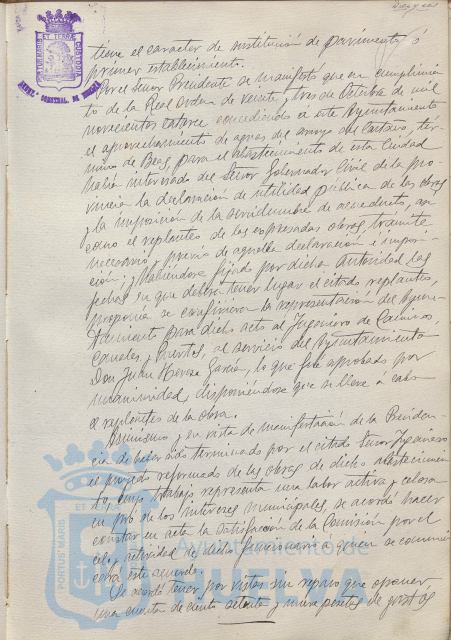 tiene el caracter de sustitución de pavimento ó
primer establecimiento.
Por el Señor Presidente se manifestó que en cumplimien
to de la Real orden de veinte y tres de Octubre de mil
novecientos catorce concediendo a este Ayuntamiento
el aprovechamiento de aguas del arroyo del Castaño, tér-
mino de Beas, para el abastecimiento de esta Ciudad
había interesado del Señor Gobernador Civil de la pro-
vincia la declaración de utilidad pública de las obras
y la imposición de la servidumbre de acueducto, así
como el replanteo de las expresadas obras, trámite
necesario y previo de aquella declaración e imposi-
ción; y habiéndose fijado por dicha Autoridad las
fechas en que deberá tener lugar el citado replanteo,
proponía se confiriera la representación del Ayun-
tamiento para dicho acto al Ingeniero de Caminos,
Canales y Puertos, al servicio del Ayuntamiento,
Don Juan García, lo que fue aprobado por
unanimidad, disponiéndose que se lleve a cabo
el replanteo de la obra.
Asimismo y en vista de manifestación de la Presiden-
cia de haber sido terminado por el citado Señor Ingeniero
el proyecto reformado de las obras de dicho abastecimien
to, cuyo trabajo representa una labor activa y celosa
en pró de los intereses municipales, se acordó hacer
constar en acta la satisfacción de la Comisión por el
celo y actividad de dicho funcionario a quien se comuni
cará este acuerdo.
Se acordó tener por vistas sin reparo que oponer,
una cuenta de ciento setenta y nueve pesetas de gastos
PORTUS MARIS ET TERRAE
Ayuntamiento de
HUELVA